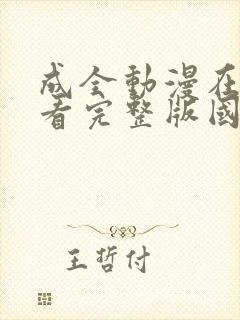 成全動漫在
看完整版國
王哲付